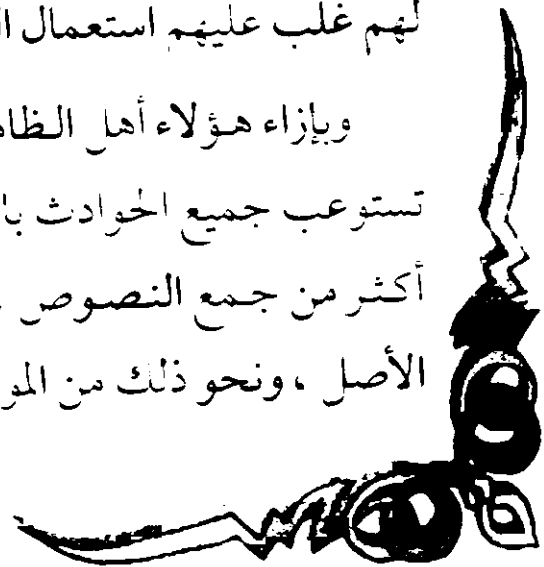 لهم غلب عليهم استعمال ال
وبإزاء هؤلاء أهل الظا
تستوعب جميع الحوادث با
أكثر من جمع النصوص
الأصل ، ونحو ذلك من المو